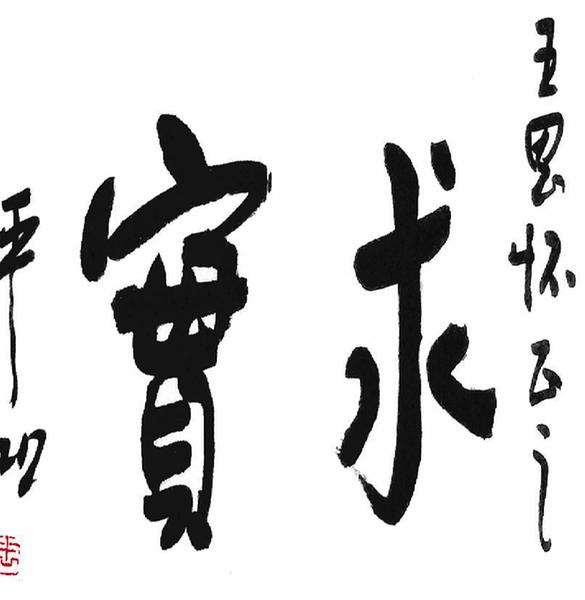 王思怀正之
求實
平凹